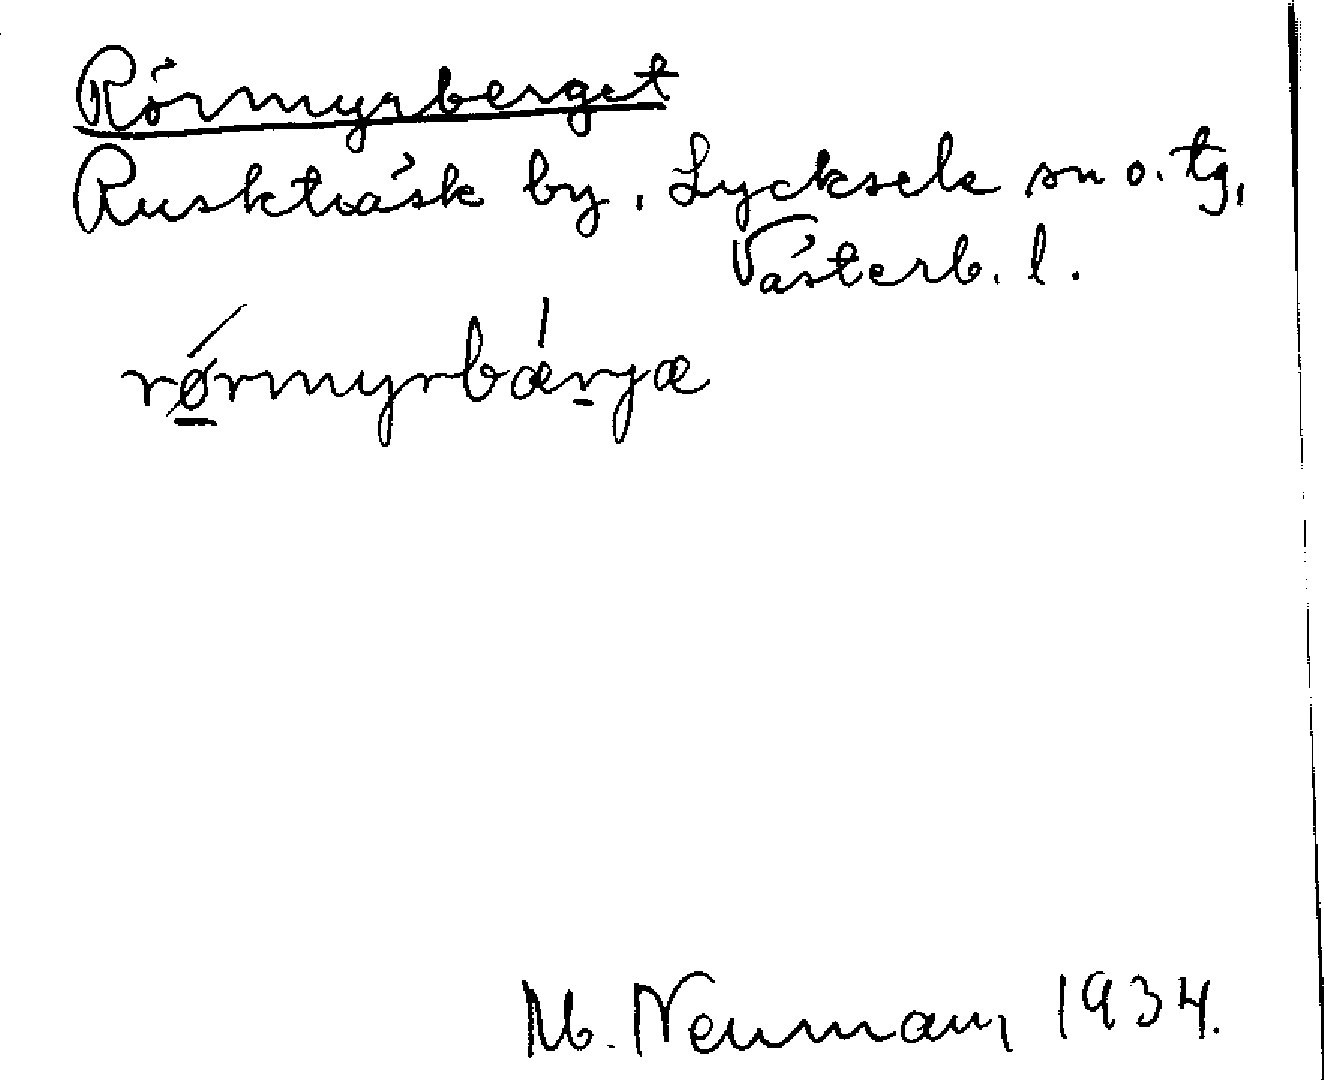 Rörmyrberget
Ruskträsk by, Lycksele sn o. tg,
Västerb. l.
rǿrmyrbǽrjæ
M. Neuman, 1934.